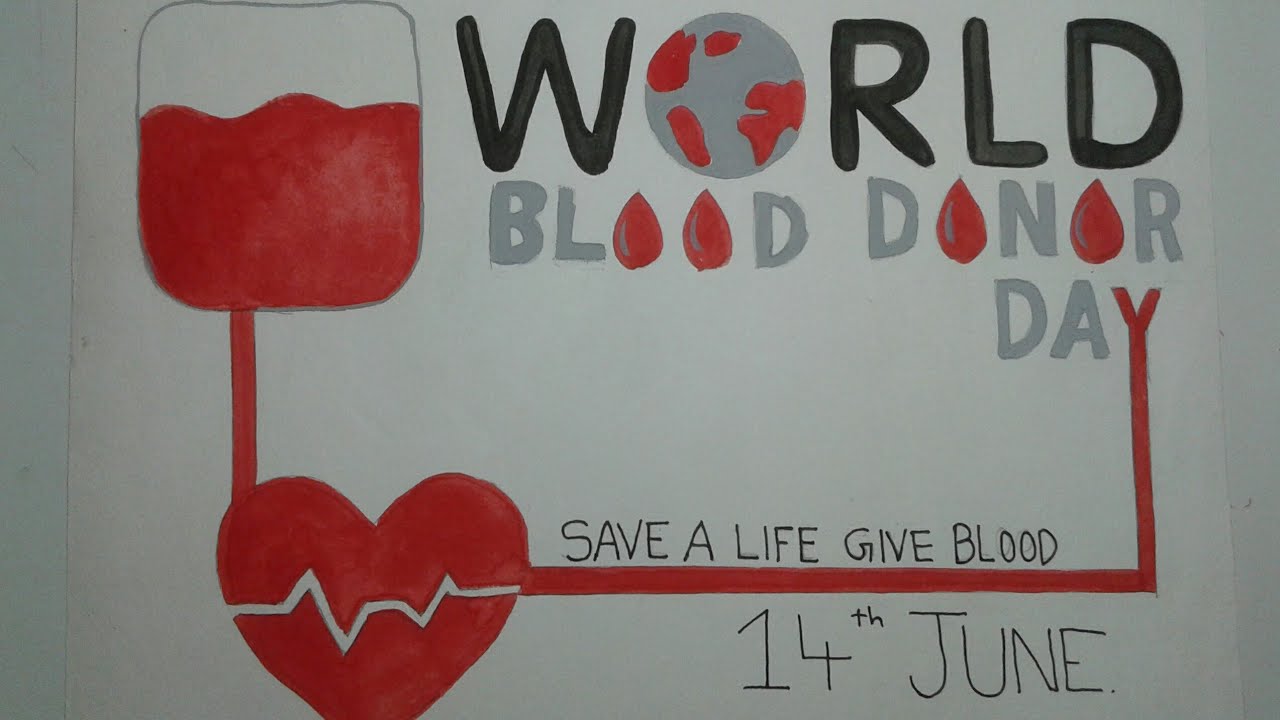 WORLD
BLOOD DONOR
DAY
SAVE A LIFE GIVE BLOOD
14th JUNE.